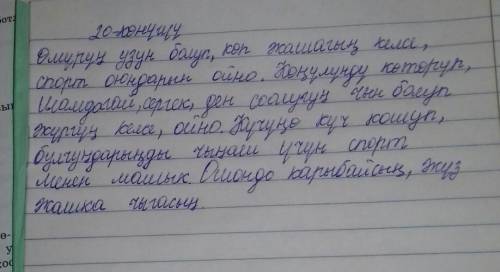 20-көнүгүү
Өмүрүң узун болуп, көп жашагың келсе,
спорт оюндарын ойно. Көңүлүңдү көтөрүп,
Шамдагай, сергек, ден соолугуң чың болуп
жүргүң келсе, ойно. Күчүңө күч кошуп,
булчуңдарыңды чыңаш үчүн спорт
менен машык. Ошондо карыбайсың, жүз
жашка чыгасың.